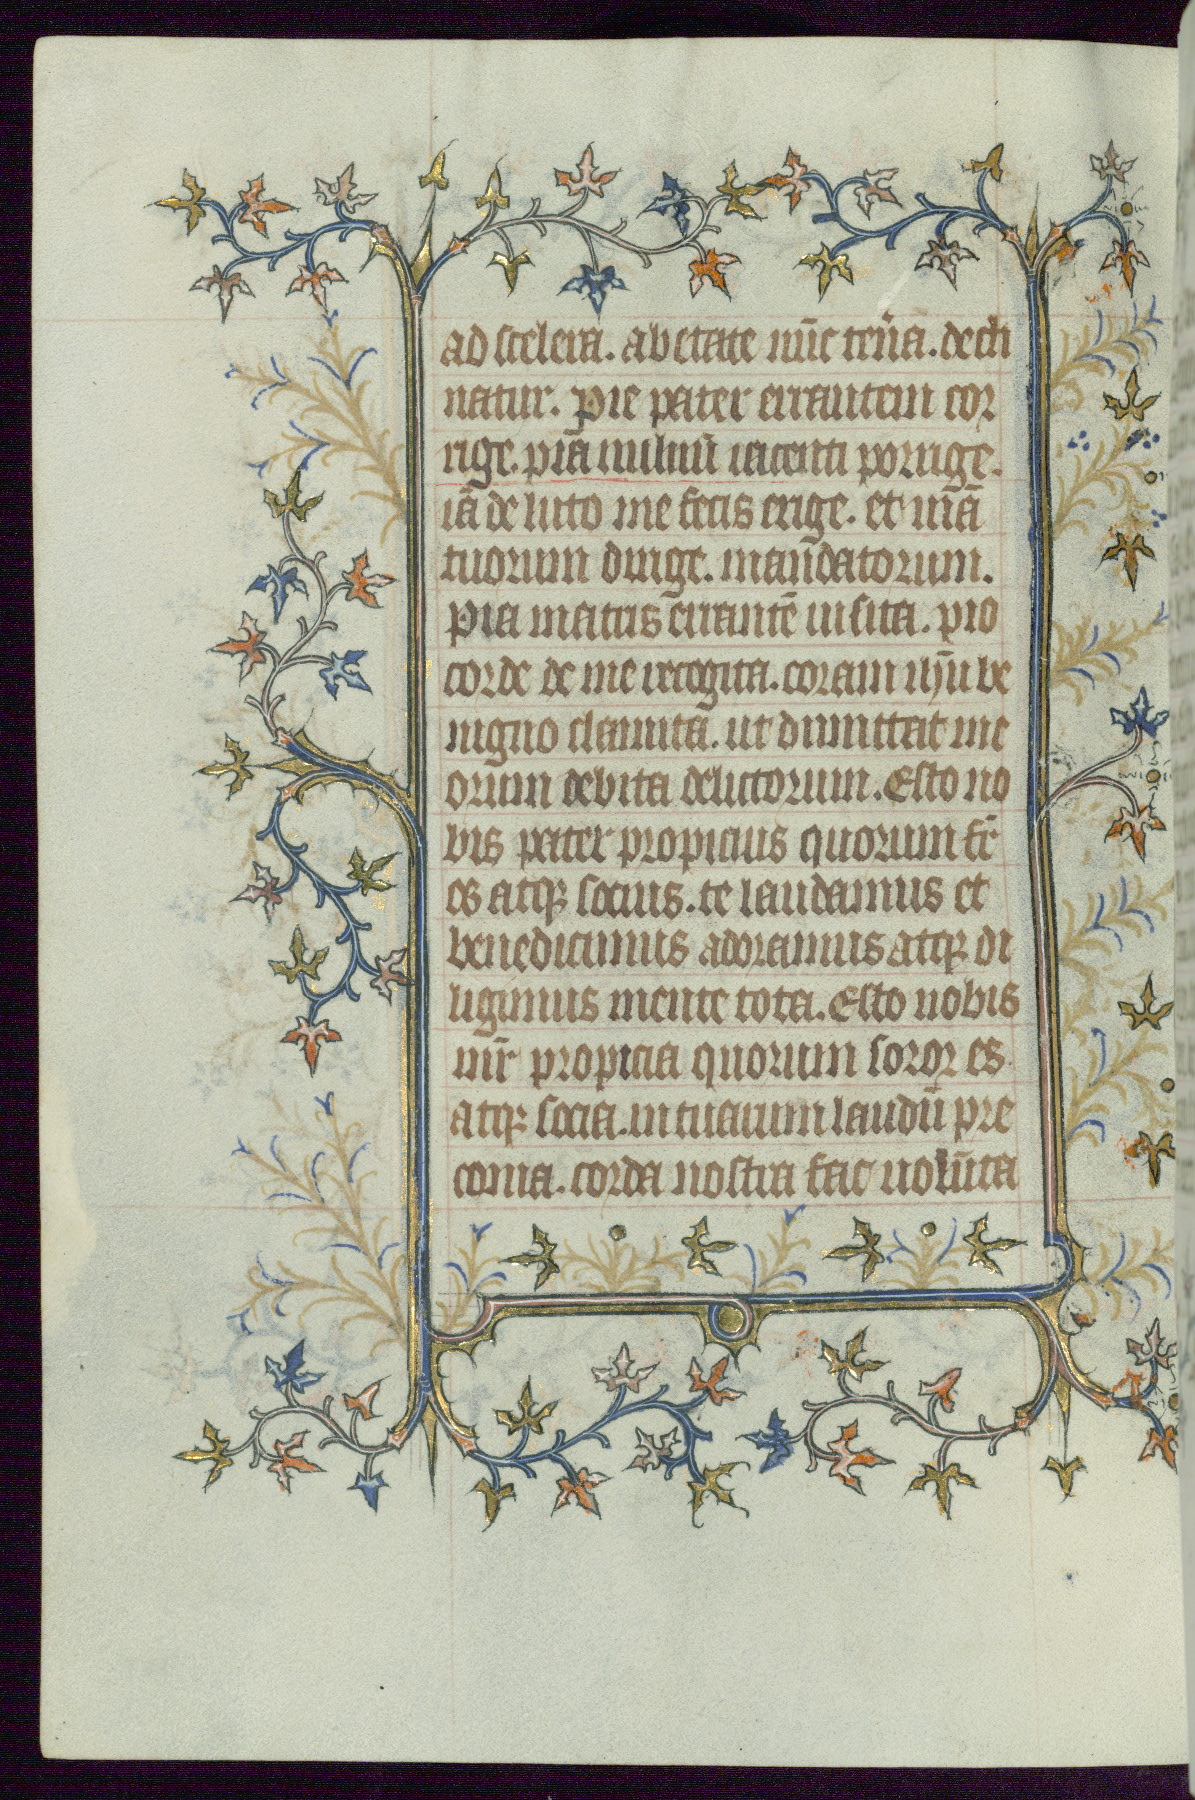 ad scelera. ab etate nūc ten̄a. decli
natur. Pie pater errantem cor
rige. piā manū iacenti porrige.
iā de luto me fecis erige. et uiā
tuorum dirige. man̄datorum.
Pia matris errantē uisita. pro
corde de me recogita. coram ihū be
nigno clamita. ut dimittat me
orum debita delictorum. Esto no
bis pater propicius quorum fr̄
es atq; socius. te laudamus et
benedicimus adoramus atq; di
ligimus mente tota. Esto nobis
mr̄ propicia quorum soror es
atq; socia. in tuarum laudū pre
conia. corda nostra fac